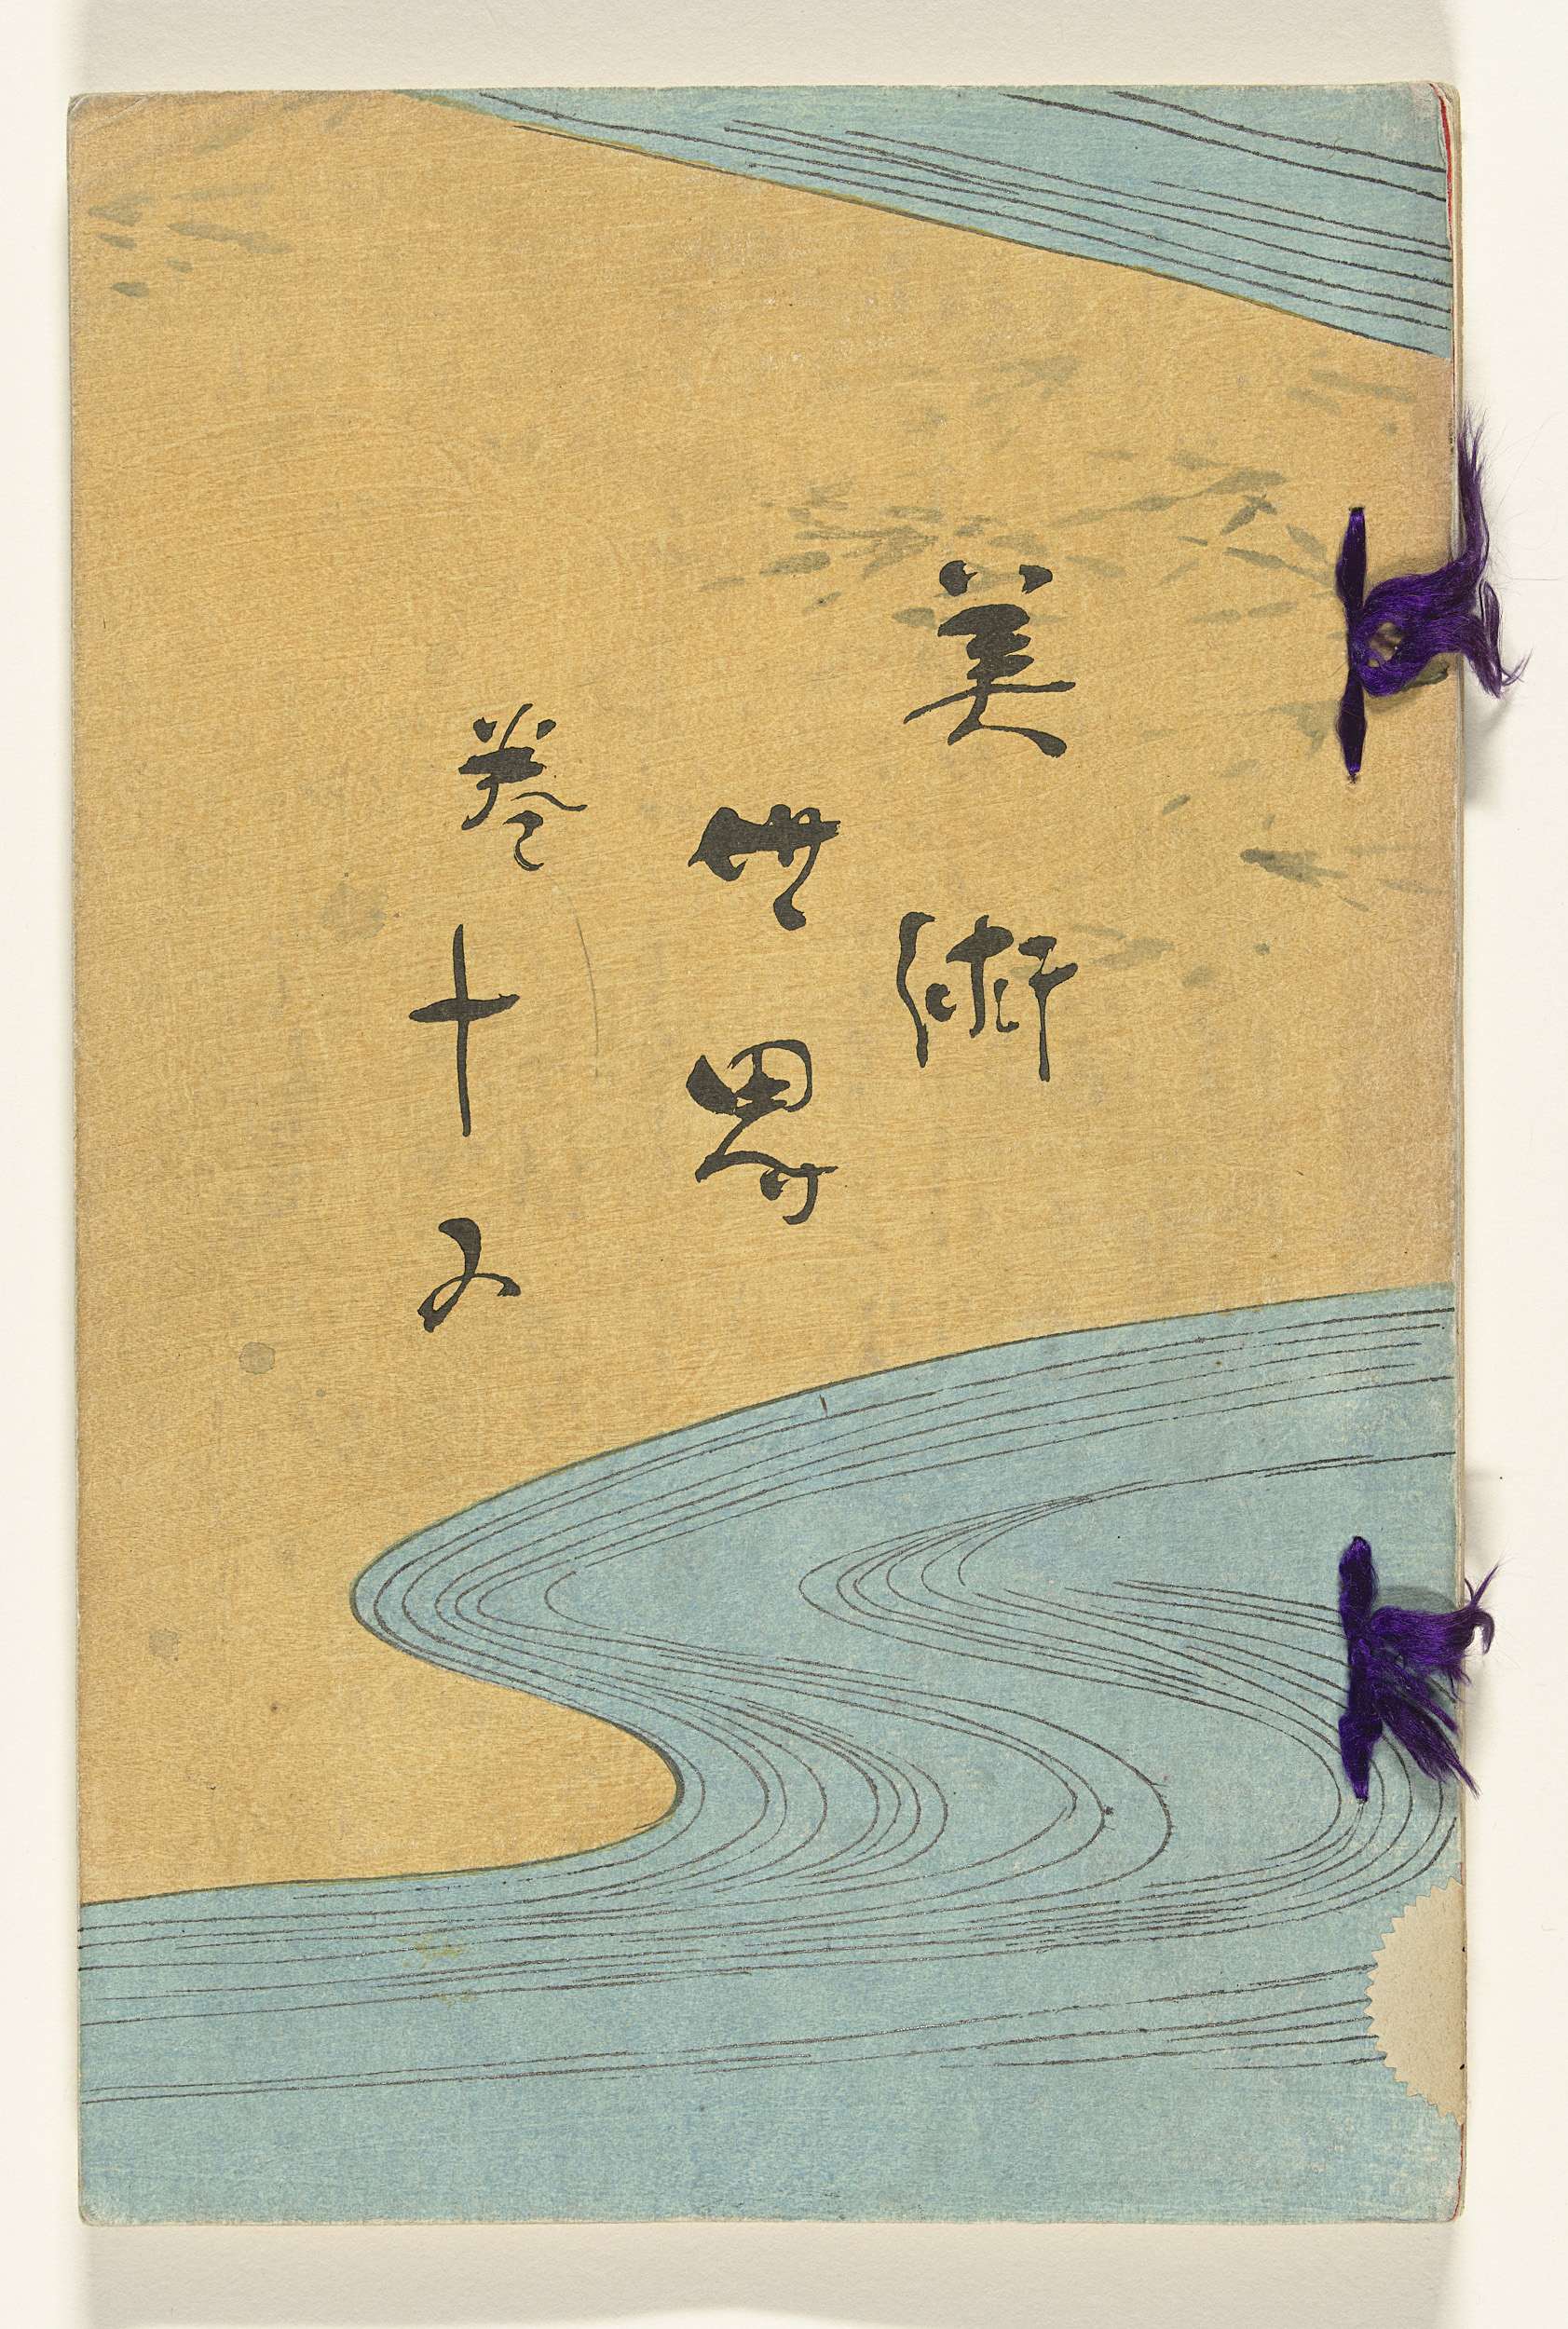 美術
世界
巻十